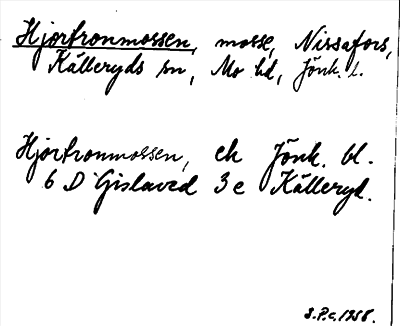 Hjortronmossen, mosse, Nissafors,
Källeryds sn, Mo hd, Jönk. l.
Hjortronmossen, ek Jönk. bl.
6 D Gislaved 3 e Källeryd.
S.P.c. 1958.